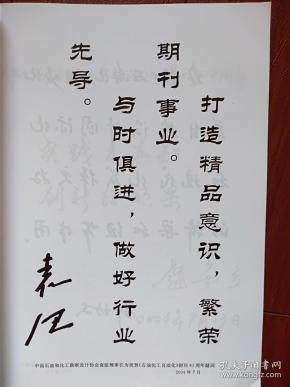 打造精品意识，繁荣
期刊事业。
与时俱进，做好行业
先导。
中国石油和化工勘察设计协会袁纽理事长为祝贺《石油化工自动化》创刊40周年题词
2004年7月